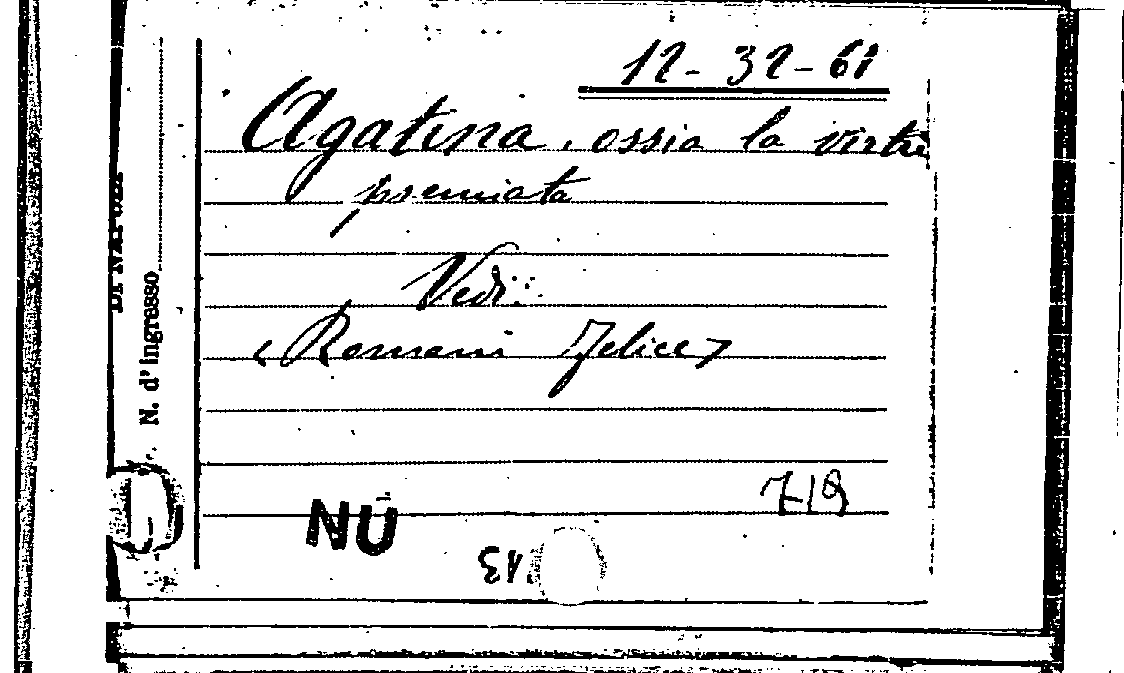 12-32-61
Agatina, ossia la virtù
premiata
Vedi:
<Romani Felice>
719
NU
13.
DI NAPOLI
N. d'ingresso